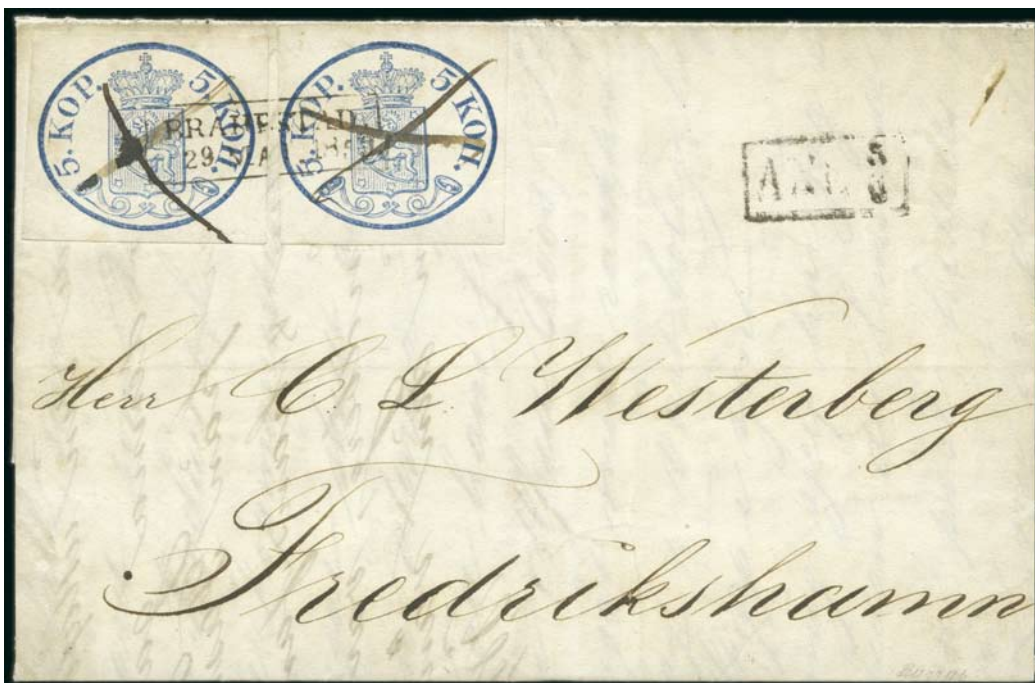 5. KOP. 5. КОП.
5. KOP. 5 КОП.
BRAHESTAD
29
ANK.
Herr C L. Westerberg
Fredrikshamn